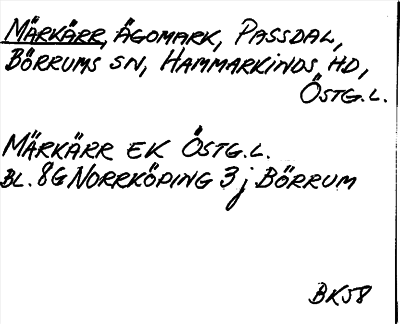 MÄRKÄRR, ÄGOMARK, PASSDAL,
BÖRRUMS SN, HAMMARKINDS HD,
ÖSTG.L.
MÄRKÄRR EK ÖSTG.L.
BL. 8G NORRKÖPING 3j BÖRRUM
BKJ8